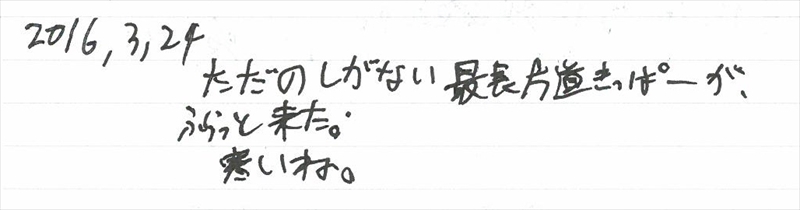 2016,3,24
ただのしがない最長片道きっぱーが、
ふらっと来た。
寒いね。